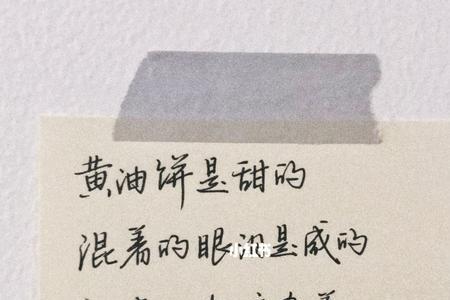 黄油饼是甜的
混着的眼泪是咸的
小红书